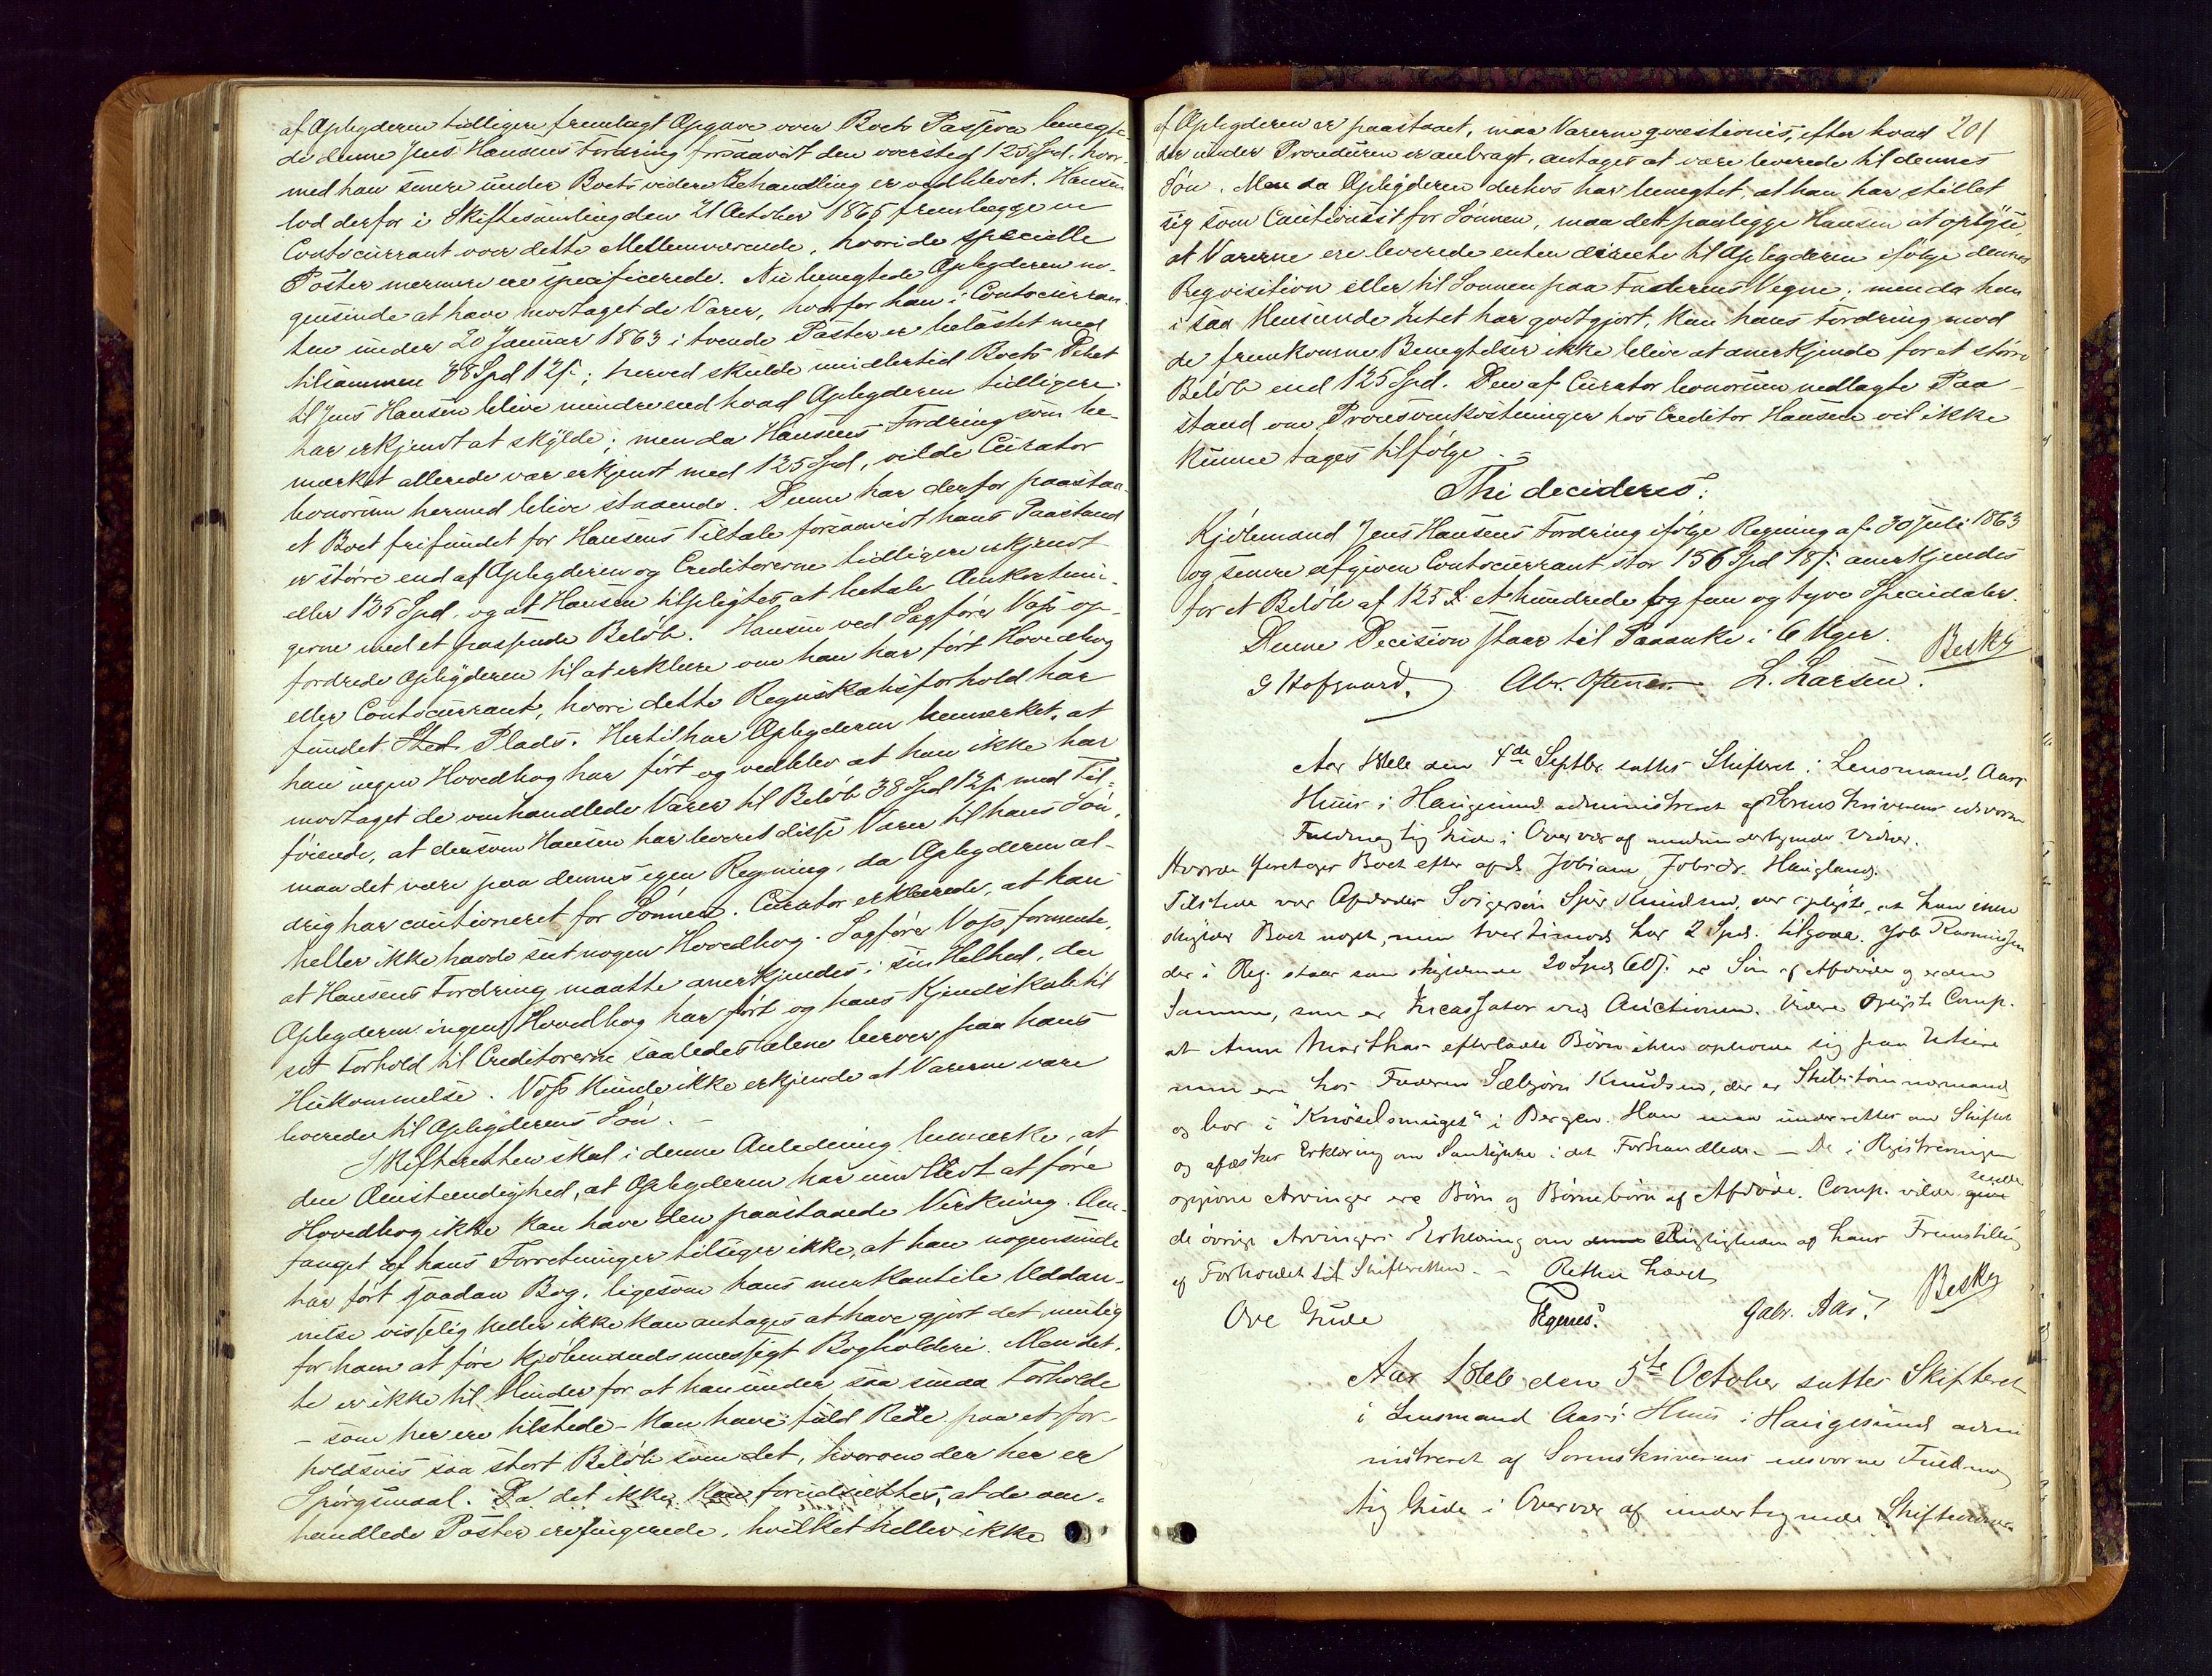 af Opbyderen tidligere fremlagt Opgave over Boets Passiva benegte-
de denne Jens Hansens Fordring forsaavidt den oversteg 125 Spd. hvor-
med han senere under Boets videre Behandling er vedblevet. Hansen
lod derfor i Skiftesamling den 21 October 1865 fremlægge en
Contocurrant over dette Mellemværende, hvori de specielle
Poster nærmere ere specificerede. Nu benegtede Opbyderen no-
gensinde at have modtaget de Varer, hvorfor han i Contocurran-
ten under 20 Januar 1863 i tvende Poster er belastet med
tilsammen 38 Spd 12 s; herved skulde imidlertid Boets Debet
til Jens Hansen blive mindre end hvad Opbyderen tidligere
har erkjendt at skylde; men da Hansens Fordring som be-
mærket allerede var erkjendt med 125 Spd, vilde Curator
bonorum hermed blive staaende. Denne har derfor paastaa-
et Boet frifundet for Hansens Tiltale forsaavidt hans Paastand
er større end af Opbyderen og Creditorerne tidligere erkjendt
eller 125 Spd. og at Hansen tilpligtes at betale Omkostnin-
gerne med et passende Beløb. Hansen ved Sagfører Voss op-
fordrede Opbyderen til at erklære om han har ført Hovedbog
eller Contocurrant, hvori dette Regnskabsforhold har
fundet Sted. Plads. Hertil har Opbyderen bemærket, at
han ingen Hovedbog har ført og vedblev at han ikke har
modtaget de omhandlede Varer til Beløb 38 Spd 12 s, med Til-
føiende, at dersom Hansen har leveret disse Varer til hans Søn,
maa det være paa dennes egen Regning, da Opbyderen al-
drig har cautioneret for Sønnen. Curator erklærede, at han
heller ikke havde seet nogen Hovedbog. Sagfører Voss formente,
at Hansens Fordring maatte anerkjendes i sin Helhed, da
Opbyderen ingen Hovedbog har ført og hans Kjendskab til
sit Forhold til Creditorerne saaledes alene beroer paa hans
Hukommelse. Voss kunde ikke erkjende at Varerne vare
leverede til Opbyderens Søn. –
Skifteretten skal i denne Anledning bemærke, at
den Omstændighed, at Opbyderen har undladt at føre
Hovedbog ikke kan have den paastaaede Virkning. Om-
fanget af hans Forretninger tilsiger ikke, at han nogensinde
har ført saadan Bog, ligesom hans merkantile Uddan-
nelse visselig heller ikke kan antages at have gjort det muelig
for ham at føre kjøbmandsmæssigt Bogholderi. Men det-
te er ikke til Hinder for at han under saa smaa Forholde
– som her ere tilstede – kan have fuld Rede paa et for-
holdsvis saa stort Beløb som det, hvorom der her er
Spørgsmaal. Da det ikke kan forudsættes, at de om-
handlede Poster ere fingerede, hvilket heller ikke
af Opbyderen er paastaaet, maa Varerne qvæstionis, efter hvad 201
der under Proceduren er anbragt, antages at være leverede til dennes
Søn. Men da Opbyderen derhos har benegtet, at han har stillet
sig som Cautionist for Sønnen, maa det paaligge Hansen at oplyse,
at Varerne ere leverede enten directe til Opbyderen ifølge dennes
Reqvisition eller til Sønnen paa Faderens Vegne; men da han
i saa Henseende Intet har godtgjort, kan hans Fordring mod
de fremkomne Benegtelser ikke blive at anerkjende for et større
Beløb end 125 Spd. Den af Curator bonorum nedlagte Paa-
stand om Procesomkostninger hos Creditor Hansen vil ikke
kunne tages tilfølge.
Thi decideres:
Kjøbmand Jens Hansens Fordring ifølge Regning af 30 Juli 1863
og senere afgiven Contocurrant stor 156 Spd 18 s. anerkjendes
for et Beløb af 125 S. et hundrede og fem og tyve Speciedaler.
Denne Decision staar til Paaanke i 6 Uger. Besky
G Hofgaard. Abr. Oftenes. L. Larsen.
Aar 1866 den 4de Septbr sattes Skifteret i Lensmand Aas's
Huus i Haugesund administreret af Sorenskriverens edsvorne
Fuldmægtig Gude i Overvær af medundertegnede Vidner.
Hvorda foretages Boet efter afd. Jobiane Jobsdr. Haugland.
Tilstede var Afdødes Svigersøn Sjur Knudsen, der oplyste, at han ikke
skylder Boet noget, men tvertimod har 2 Spd. tilgode. Job Rasmussen
der i Reg. staar som skyldende 20 Spd 60 s. er Søn af Afdøde og er den
Samme, som er Incassator ved Auctionen. Videre oplyste Comp.
at Anne Marthas efterladte Børn ikke opholde sig paa Utsire
men ere hos Faderen Sæbjørn Knudsen, der er Skibstømmermand
og bor i "Knøselsmuget" i Bergen. Han maa underrettes om Skiftet
og afæskes Erklæring om Samtykke i det Forhandlede. – De i Registreringen
opgivne Arvinger ere Børn og Børnebørn af Afdøde. Comp. vilde give
de øvrige Arvingers Erklæring om Rigtigheden af hans Fremstilling
af Forholdet til Skifteretten. – Retten hævet
Ove Gude Gabr. Aas. Besky
Aar 1866 den 5te October sattes Skifteret
i Lensmand Aas's Huus i Haugesund admi
nistreret af Sorenskriverens edsvorne Fuldmæg
tig Gude i Overvær af undertegnede